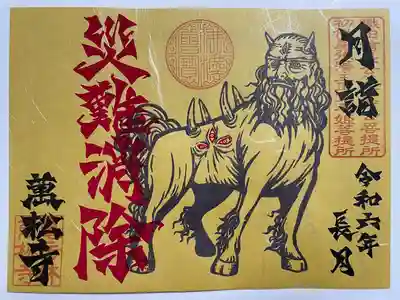 月詣
令和六年
長月
災難消除
萬松寺